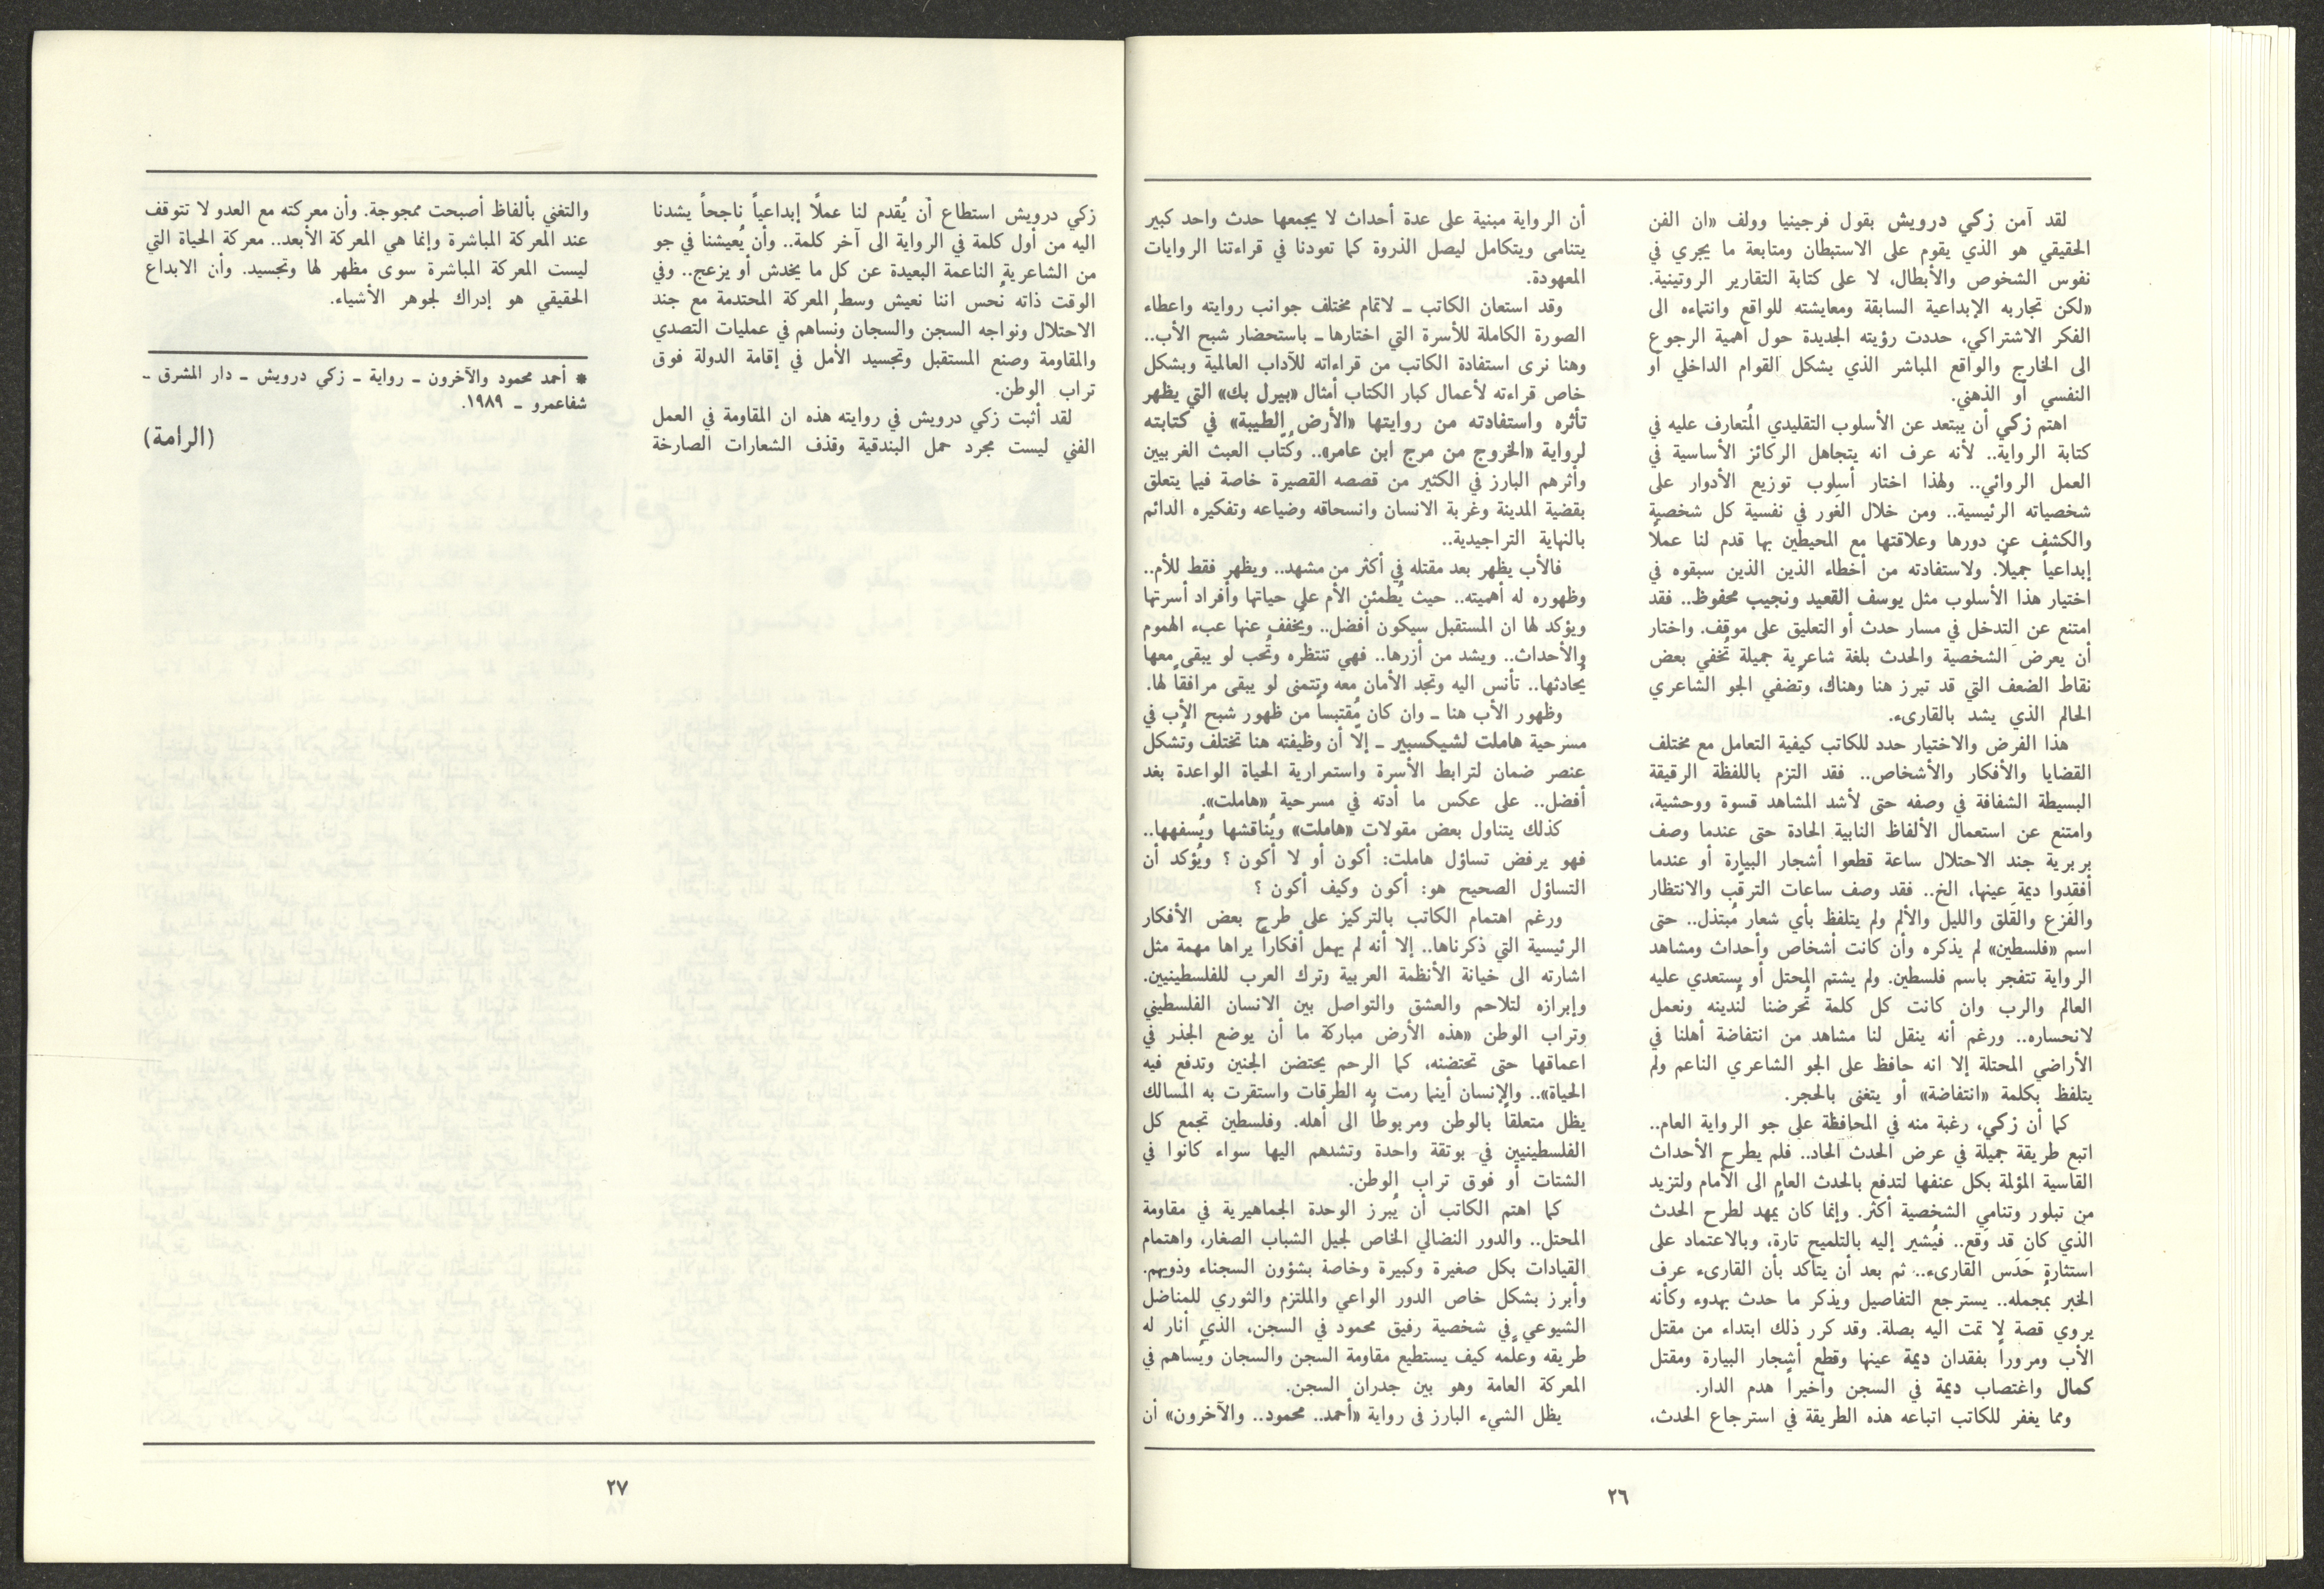 لقد آمن زكي درويش بقول فرجينيا وولف «ان الفن
الحقيقي هو الذي يقوم على الاستبطان ومتابعة ما يجري في
نفوس الشخوص والأبطال، لا على كتابة التقارير الروتينية.
«لكن تجاربه الإبداعية السابقة ومعايشته للواقع وانتماءه الى
الفكر الاشتراكي، حددت رؤيته الجديدة حول أهمية الرجوع
الى الخارج والواقع المباشر الذي يشكل القوام الداخلي أو
النفسي أو الذهني.
اهتم زكي أن يبتعد عن الأسلوب التقليدي المُتعارف عليه في
كتابة الرواية.. لأنه عرف انه يتجاهل الركائز الأساسية في
العمل الروائي.. ولهذا اختار أسلوب توزيع الأدوار على
شخصياته الرئيسية.. ومن خلال الغور في نفسية كل شخصية
والكشف عن دورها وعلاقتها مع المحيطين بها قدم لنا عملاً
إبداعياً جميلاً. ولاستفادته من أخطاء الذين الذين سبقوه في
اختيار هذا الأسلوب مثل يوسف القعيد ونجيب محفوظ.. فقد
امتنع عن التدخل في مسار حدث أو التعليق على موقف. واختار
أن يعرض الشخصية والحدث بلغة شاعرية جميلة تُخفي بعض
نقاط الضعف التي قد تبرز هنا وهناك، وتُضفي الجو الشاعري
الحالم الذي يشد بالقارىء.
هذا الفرض والاختيار حدد للكاتب كيفية التعامل مع مختلف
القضايا والأفكار والأشخاص.. فقد التزم باللفظة الرقيقة
البسيطة الشفافة في وصفه حتى لأشد المشاهد قسوة ووحشية،
وامتنع عن استعمال الألفاظ النابية الحادة حتى عندما وصف
بربرية جند الاحتلال ساعة قطعوا أشجار البيارة أو عندما
أفقدوا ديمة عينها، الخ.. فقد وصف ساعات الترقّب والانتظار
والفَزع والقَلق والليل والألم ولم يتلفظ بأي شعار مُبتذل.. حتى
اسم «فلسطين» لم يذكره وأن كانت أشخاص وأحداث ومشاهد
الرواية تتفجر باسم فلسطين. ولم يشتم المحتل أو يستعدي عليه
العالم والرب وان كانت كل كلمة تُحرضنا لنُدينه ونعمل
لانحساره.. ورغم أنه ينقل لنا مشاهد من انتفاضة أهلنا في
الأراضي المحتلة إلا انه حافظ على الجو الشاعري الناعم ولم
يتلفظ بكلمة «انتفاضة» أو يتغنى بالحجر.
كما أن زكي، رغبة منه في المحافظة على جو الرواية العام..
اتبع طريقة جميلة في عرض الحدث الحاد.. فلم يطرح الأحداث
القاسية المؤلمة بكل عنفها لتدفع بالحدث العام الى الأمام ولتزيد
من تبلور وتنامي الشخصية أكثر. وإنما كان يُمهد لطرح الحدث
الذي كان قد وَقع.. فيُشير إليه بالتلميح تارة، وبالاعتماد على
استثارة حَدَس القارىء.. ثم بعد أن يتأكد بأن القارىء عرف
الخبر بمجمله.. يسترجع التفاصيل ويذكر ما حدث بهدوء وكأنه
يروي قصة لا تمت اليه بصلة. وقد كرر ذلك ابتداء من مقتل
الأب ومروراً بفقدان ديمة عينها وقطع أشجار البيارة ومقتل
كمال واغتصاب ديمة في السجن وأخيراً هدم الدار.
ومما يغفر للكاتب اتباعه هذه الطريقة في استرجاع الحدث،
أن الرواية مبنية على عدة أحداث لا يجمعها حدث واحد كبير
يتنامى ويتكامل ليصل الذروة كما تعودنا في قراءتنا الروايات
المعهودة.
وقد استعان الكاتب ــ لاتمام مختلف جوانب روايته واعطاء
الصورة الكاملة للأسرة التي اختارها ــ باستحضار شبح الأب..
وهنا نرى استفادة الكاتب من قراءاته للآداب العالمية وبشكل
خاص قراءته لأعمال كبار الكتاب أمثال «بيرل بك» التي يظهر
تأثره واستفادته من روايتها «الأرض الطيبة» في كتابته
لرواية «الخروج من مرج ابن عامر».. وكُتّاب العبث الغربيين
وأثرهم البارز في الكثير من قصصه القصيرة خاصة فيما يتعلق
بقضية المدينة وغربة الانسان وانسحاقه وضياعه وتفكيره الدائم
بالنهاية التراجيدية..
فالأب يظهر بعد مقتله في أكثر من مشهد.. ويظهر فقط للأم..
وظهوره له أهميته.. حيث يُطمئن الأم على حياتها وأفراد أسرتها
ويؤكد لها ان المستقبل سيكون أفضل.. ويُخفف عنها عبء الهموم
والأحداث.. ويشد من أزرها.. فهي تنتظره وتُحب لو يبقى معها
يُحادثها.. تأنس اليه وتجد الأمان معه وتتمنى لو يبقى مرافقاً لها.
وظهور الأب هنا ــ وان كان مُقتبساً من ظهور شبح الأب في
مسرحية هاملت لشيكسبير ــ إلا أن وظيفته هنا تختلف وتُشكل
عنصر ضمان لترابط الأسرة واستمرارية الحياة الواعدة بغد
أفضل.. على عكس ما أدته في مسرحية «هاملت».
كذلك يتناول بعض مقولات «هاملت» ويُناقشها ويُسفهها..
فهو يرفض تساؤل هاملت: أكون أو لا أكون ؟ ويُؤكد أن
التساؤل الصحيح هو: أكون وكيف أكون ؟
ورغم اهتمام الكاتب بالتركيز على طرح بعض الأفكار
الرئيسية التي ذكرناها.. إلا أنه لم يهمل أفكاراً يراها مهمة مثل
اشارته الى خيانة الأنظمة العربية وترك العرب للفلسطينيين.
وإبرازه لتلاحم والعشق والتواصل بين الانسان الفلسطيني
وتراب الوطن «هذه الأرض مباركة ما أن يوضع الجذر في
اعماقها حتى تحتضنه، كما الرحم يحتضن الجنين وتدفع فيه
الحياة».. والإنسان أينما رمت به الطرقات واستقرت به المسالك
يظل متعلقاً بالوطن ومربوطاً الى أهله. وفلسطين تجمع كل
الفلسطينيين في بوتقة واحدة وتشدهم اليها سواء كانوا في
الشتات أو فوق تراب الوطن.
كما اهتم الكاتب أن يُبرز الوحدة الجماهيرية في مقاومة
المحتل.. والدور النضالي الخاص لجيل الشباب الصغار، واهتمام
القيادات بكل صغيرة وكبيرة وخاصة بشؤون السجناء وذويهم.
وأبرز بشكل خاص الدور الواعي والملتزم والثوري للمناضل
الشيوعي في شخصية رفيق محمود في السجن، الذي أنار له
طريقه وعلّمه كيف يستطيع مقاومة السجن والسجان ويُساهم في
المعركة العامة وهو بين جدران السجن.
يظل الشيء البارز في رواية «أحمد.. محمود.. والآخرون» أن
٢٦
زكي درويش استطاع أن يُقدم لنا عملًا إبداعياً ناجحاً يشدنا
اليه من أول كلمة في الرواية الى آخر كلمة.. وأن يُعيشنا في جو
من الشاعرية الناعمة البعيدة عن كل ما يخدش أو يزعج.. وفي
الوقت ذاته نُحس اننا نعيش وسط المعركة المحتدمة مع جند
الاحتلال ونواجه السجن والسجان ونُساهم في عمليات التصدي
والمقاومة وصنع المستقبل وتجسيد الأمل في إقامة الدولة فوق
تراب الوطن.
لقد أثبت زكي درويش في روايته هذه ان المقاومة في العمل
الفني ليست مجرد حمل البندقية وقذف الشعارات الصارخة
والتغني بألفاظ أصبحت ممجوجة. وأن معركته مع العدو لا تتوقف
عند المعركة المباشرة وإنما هي المعركة الأبعد.. معركة الحياة التي
ليست المعركة المباشرة سوى مظهر لها وتجسيد. وأن الابداع
الحقيقي هو إدراك لجوهر الأشياء.
* أحمد محمود والآخرون ــ رواية ــ زكي درويش ــ دار المشرق ــ
شفاعمرو ــ ١٩٨٩.
(الرامة)
٢٧